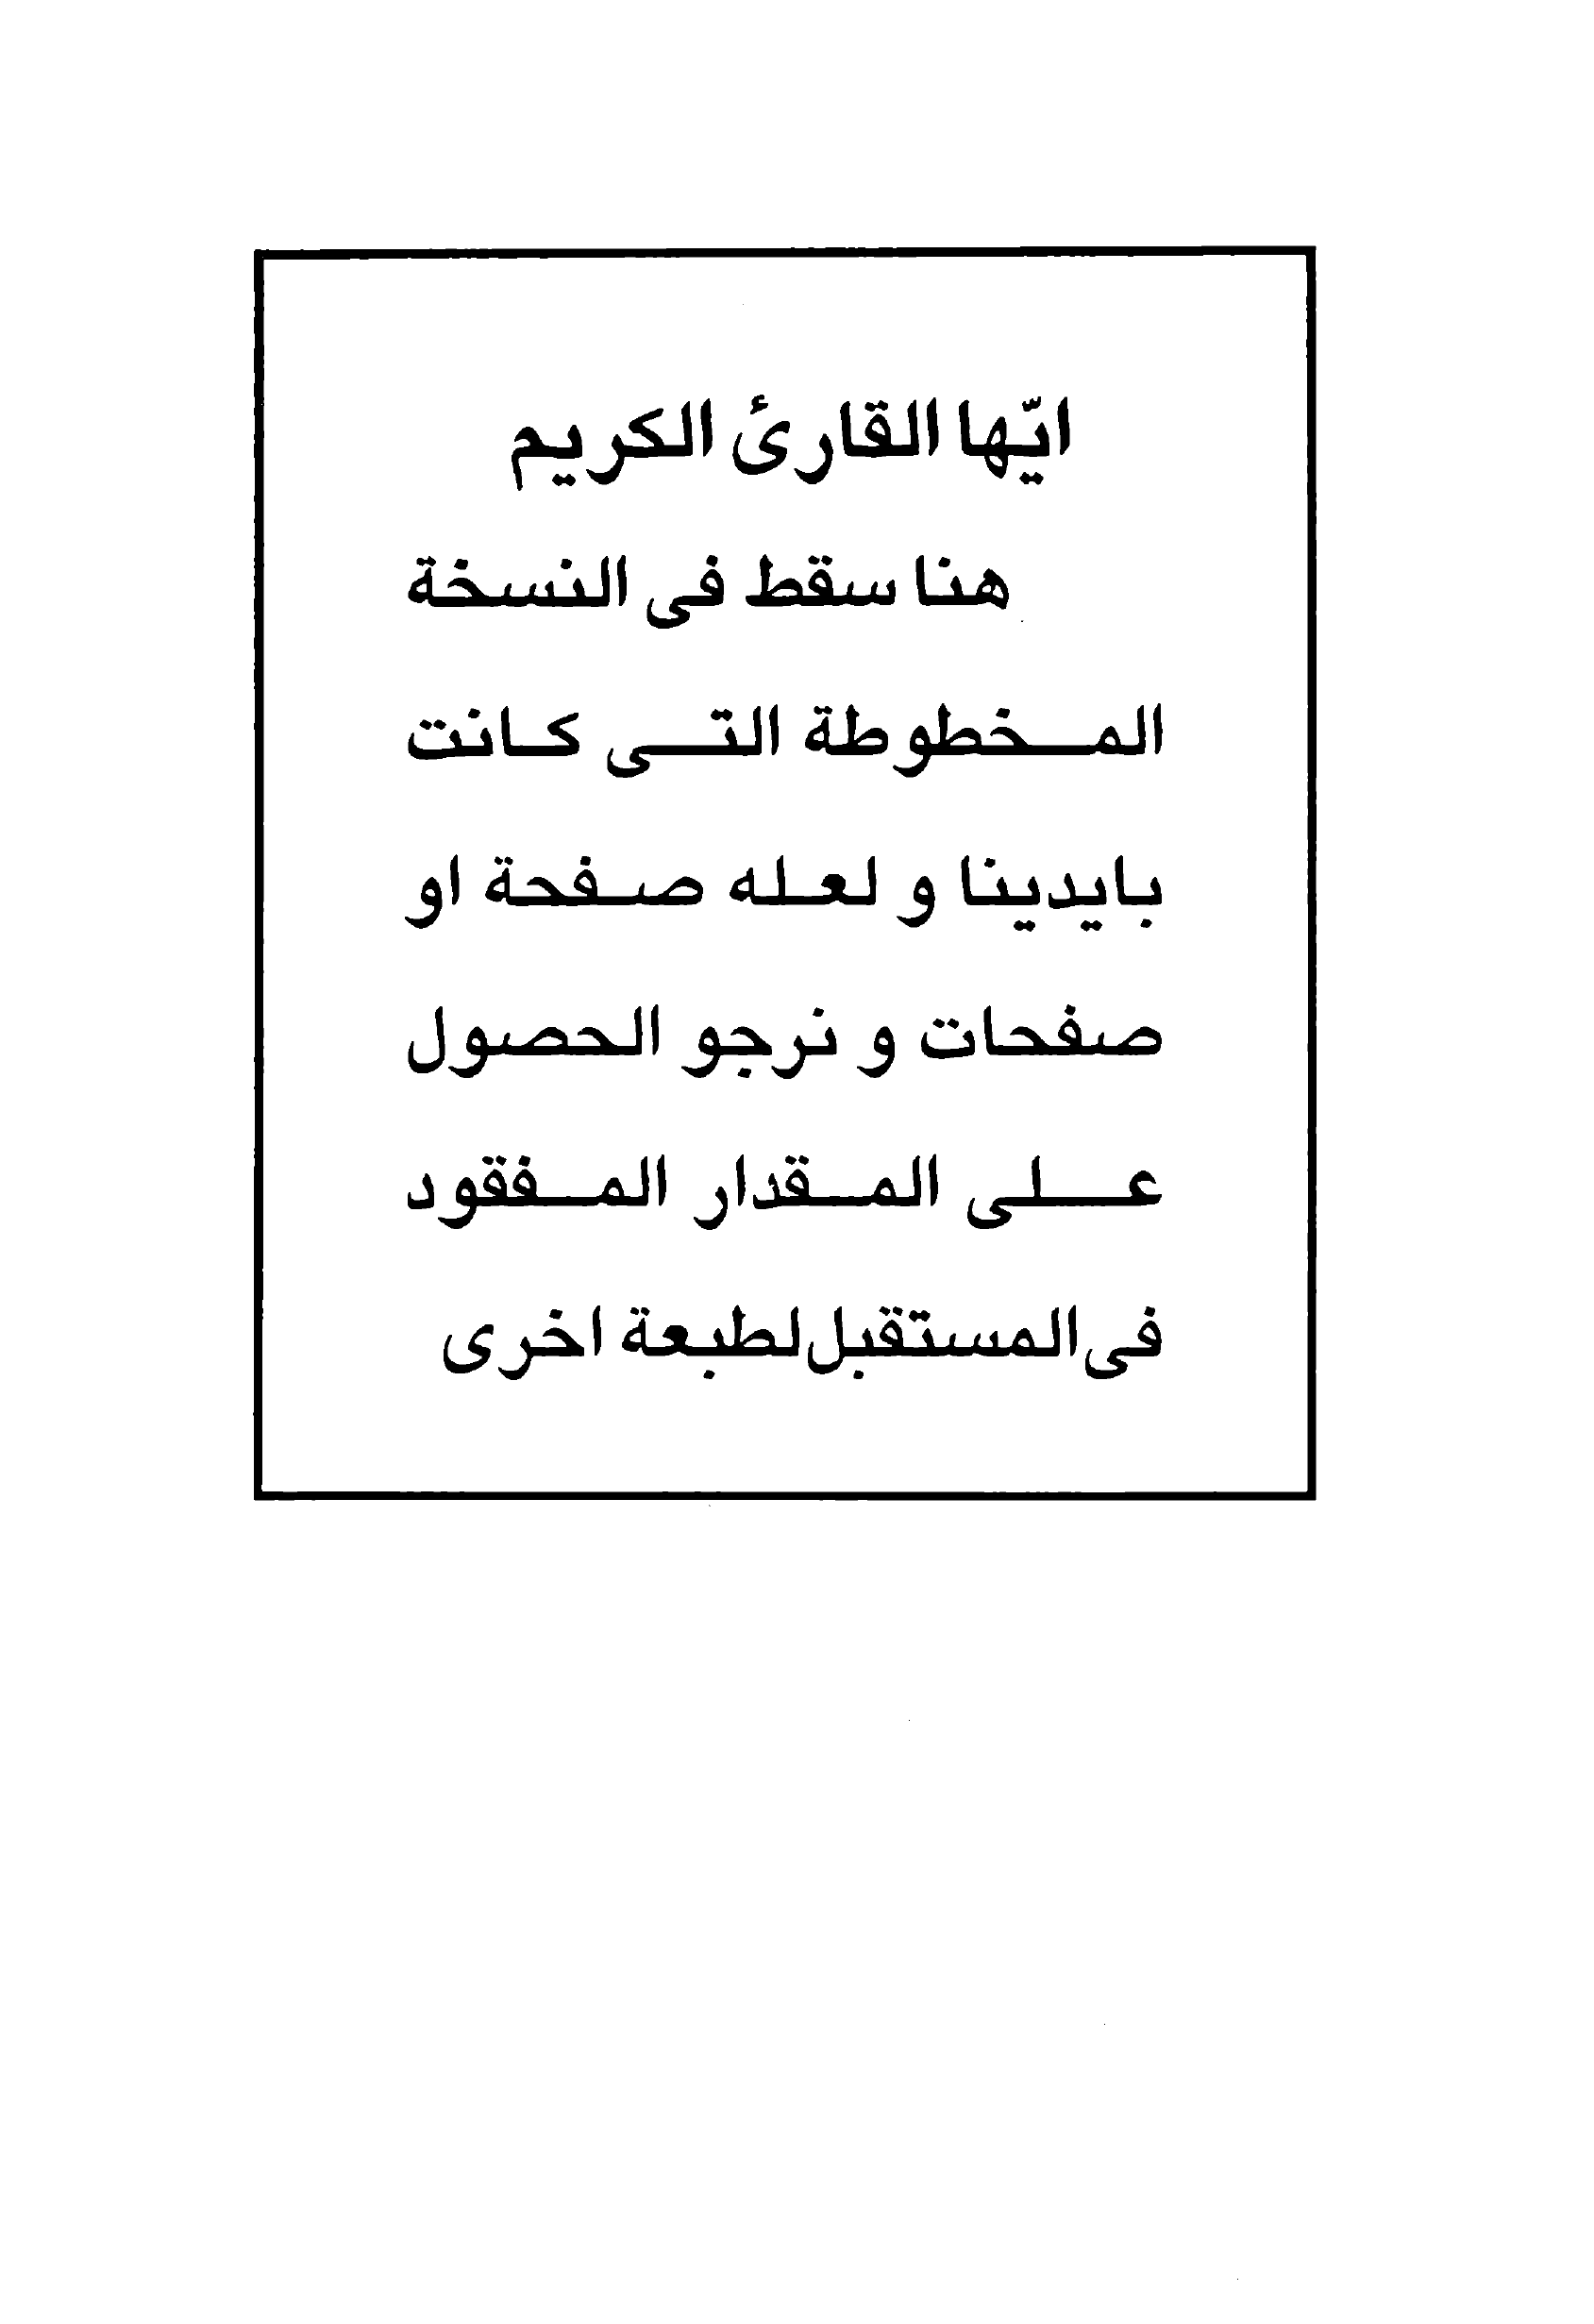 ايّها القارئ الكريم
هنا سقط فى النسخة
المخطوطة التى كانت
بايدينا و لعله صفحة او
صفحات و نرجو الحصول
على المقدار المفقود
فى المستقبل لطبعة اخرى